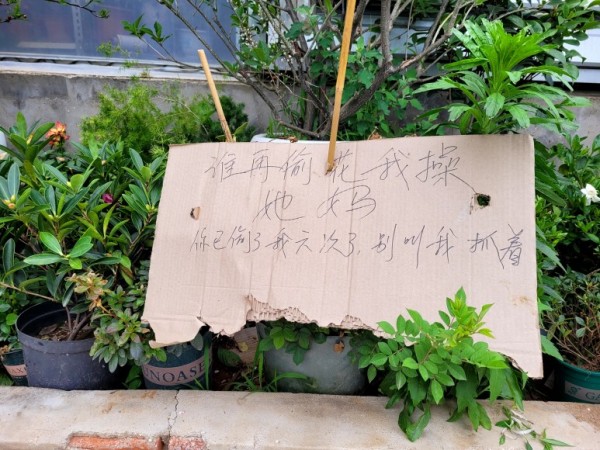 谁再偷花我操
她妈
你已偷了我六次了，别叫我抓着
ENOASE